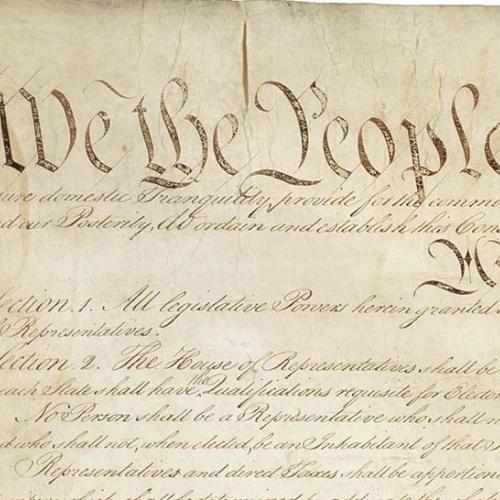 We the People
sure domestic Tranquility, provide for the common
and our Posterity, do ordain and establish this Cons
Section. 1. All legislative Powers herein granted
Representatives.
Section. 2. The House of Representatives shall be
each State shall have the Qualifications requisite for Elector
No Person shall be a Representative who shall n
who shall not, when elected, be an Inhabitant of that S
Representatives and direct Taxes shall be apportion